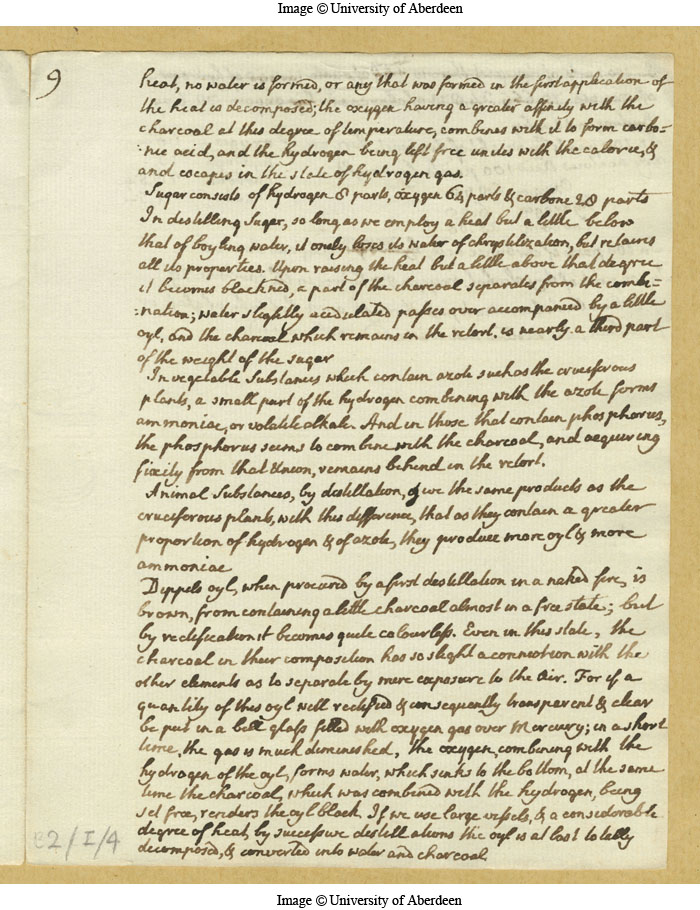 Image © University of Aberdeen
9
heat, no water is formed, or any that was formed in the first application of
the heat is decomposed; the oxygen having a greater affinity with the
charcoal at this degree of temperature, combines with it to form carbo=
:nic acid, and the hydrogen being left free unites with the caloric, &
and escapes in the state of hydrogen gas.
Sugar consists of hydrogen 8 parts, oxygen 64 parts & carbone 28 parts
In destilling Sugar, so long as we employ a heat but a little below
that of boyling water, it onely loses its water of chrystilization, but retains
all its properties. Upon raising the heat but a little above that degree
it becomes blackned, a part of the charcoal separates from the combi=
:nation; water slightly acidulated passes over accompanied by a little
oyl, and the charcoal which remains in the retort, is nearly a third part
of the weight of the sugar
In vegetable Substances which contain azote such as the cruciforous
plants, a small part of the hydrogen combining with the azote forms
ammoniac, or volatile alkali. And in those that contain phosphorus,
the phosphorus seems to combine with the charcoal, and acquiring
fixity from that Union, remains behind in the retort.
Animal Substances, by destillation, give the same products as the
cruciforous plants, with this difference, that as they contain a greater
proportion of hydrogen & of azote, they produce more oyl & more
ammoniac
Dippels oyl, when procured by a first destillation in a naked fire, is
brown, from containing a little charcoal almost in a free state; but
by rectification it becomes quite colourless. Even in this state, the
charcoal in their composition has so slight a connection with the
other elements as to separate by mere exposure to the Air. For if a
quantity of this oyl well rectified & consequently transparent & clear
be put in a bell glass filled with oxygen gas over Mercury; in a short
time, the gas is much diminished, the oxygen, combining with the
hydrogen of the oyl, forms water, which sinks to the bottom, at the same
time the charcoal, which was combined with the hydrogen, being
set free, renders the oyl black. If we use large vessels, & a considorable
degree of heat, by successive destillations the oyl is at last totally
decomposed, & converted into water and charcoal.
2/I/4
Image © University of Aberdeen